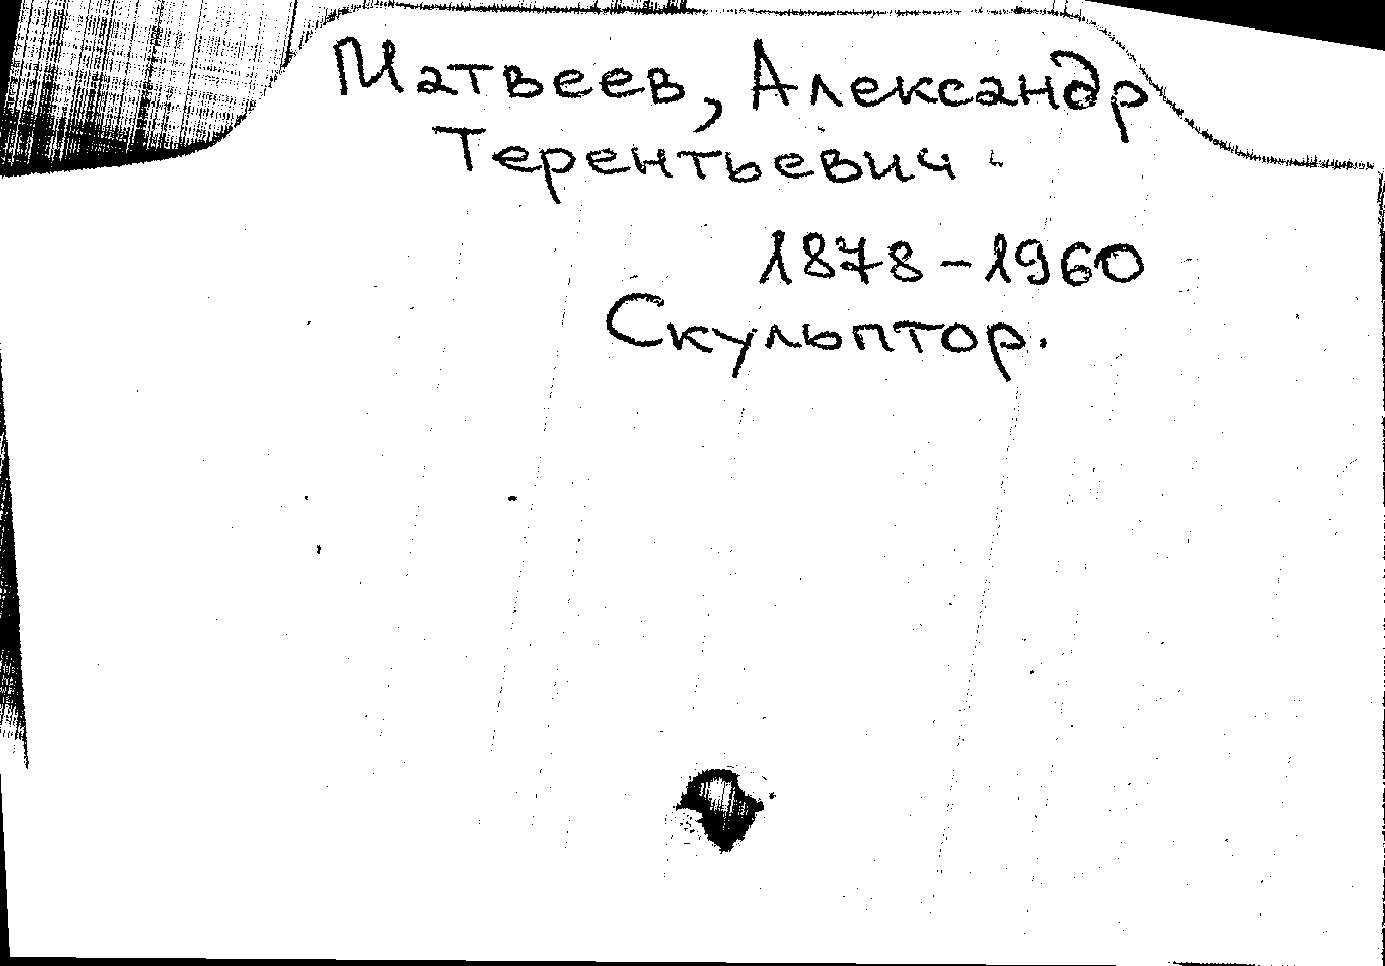 Матвеев, Александр
Терентьевич.
1878-1960
Скульптор.